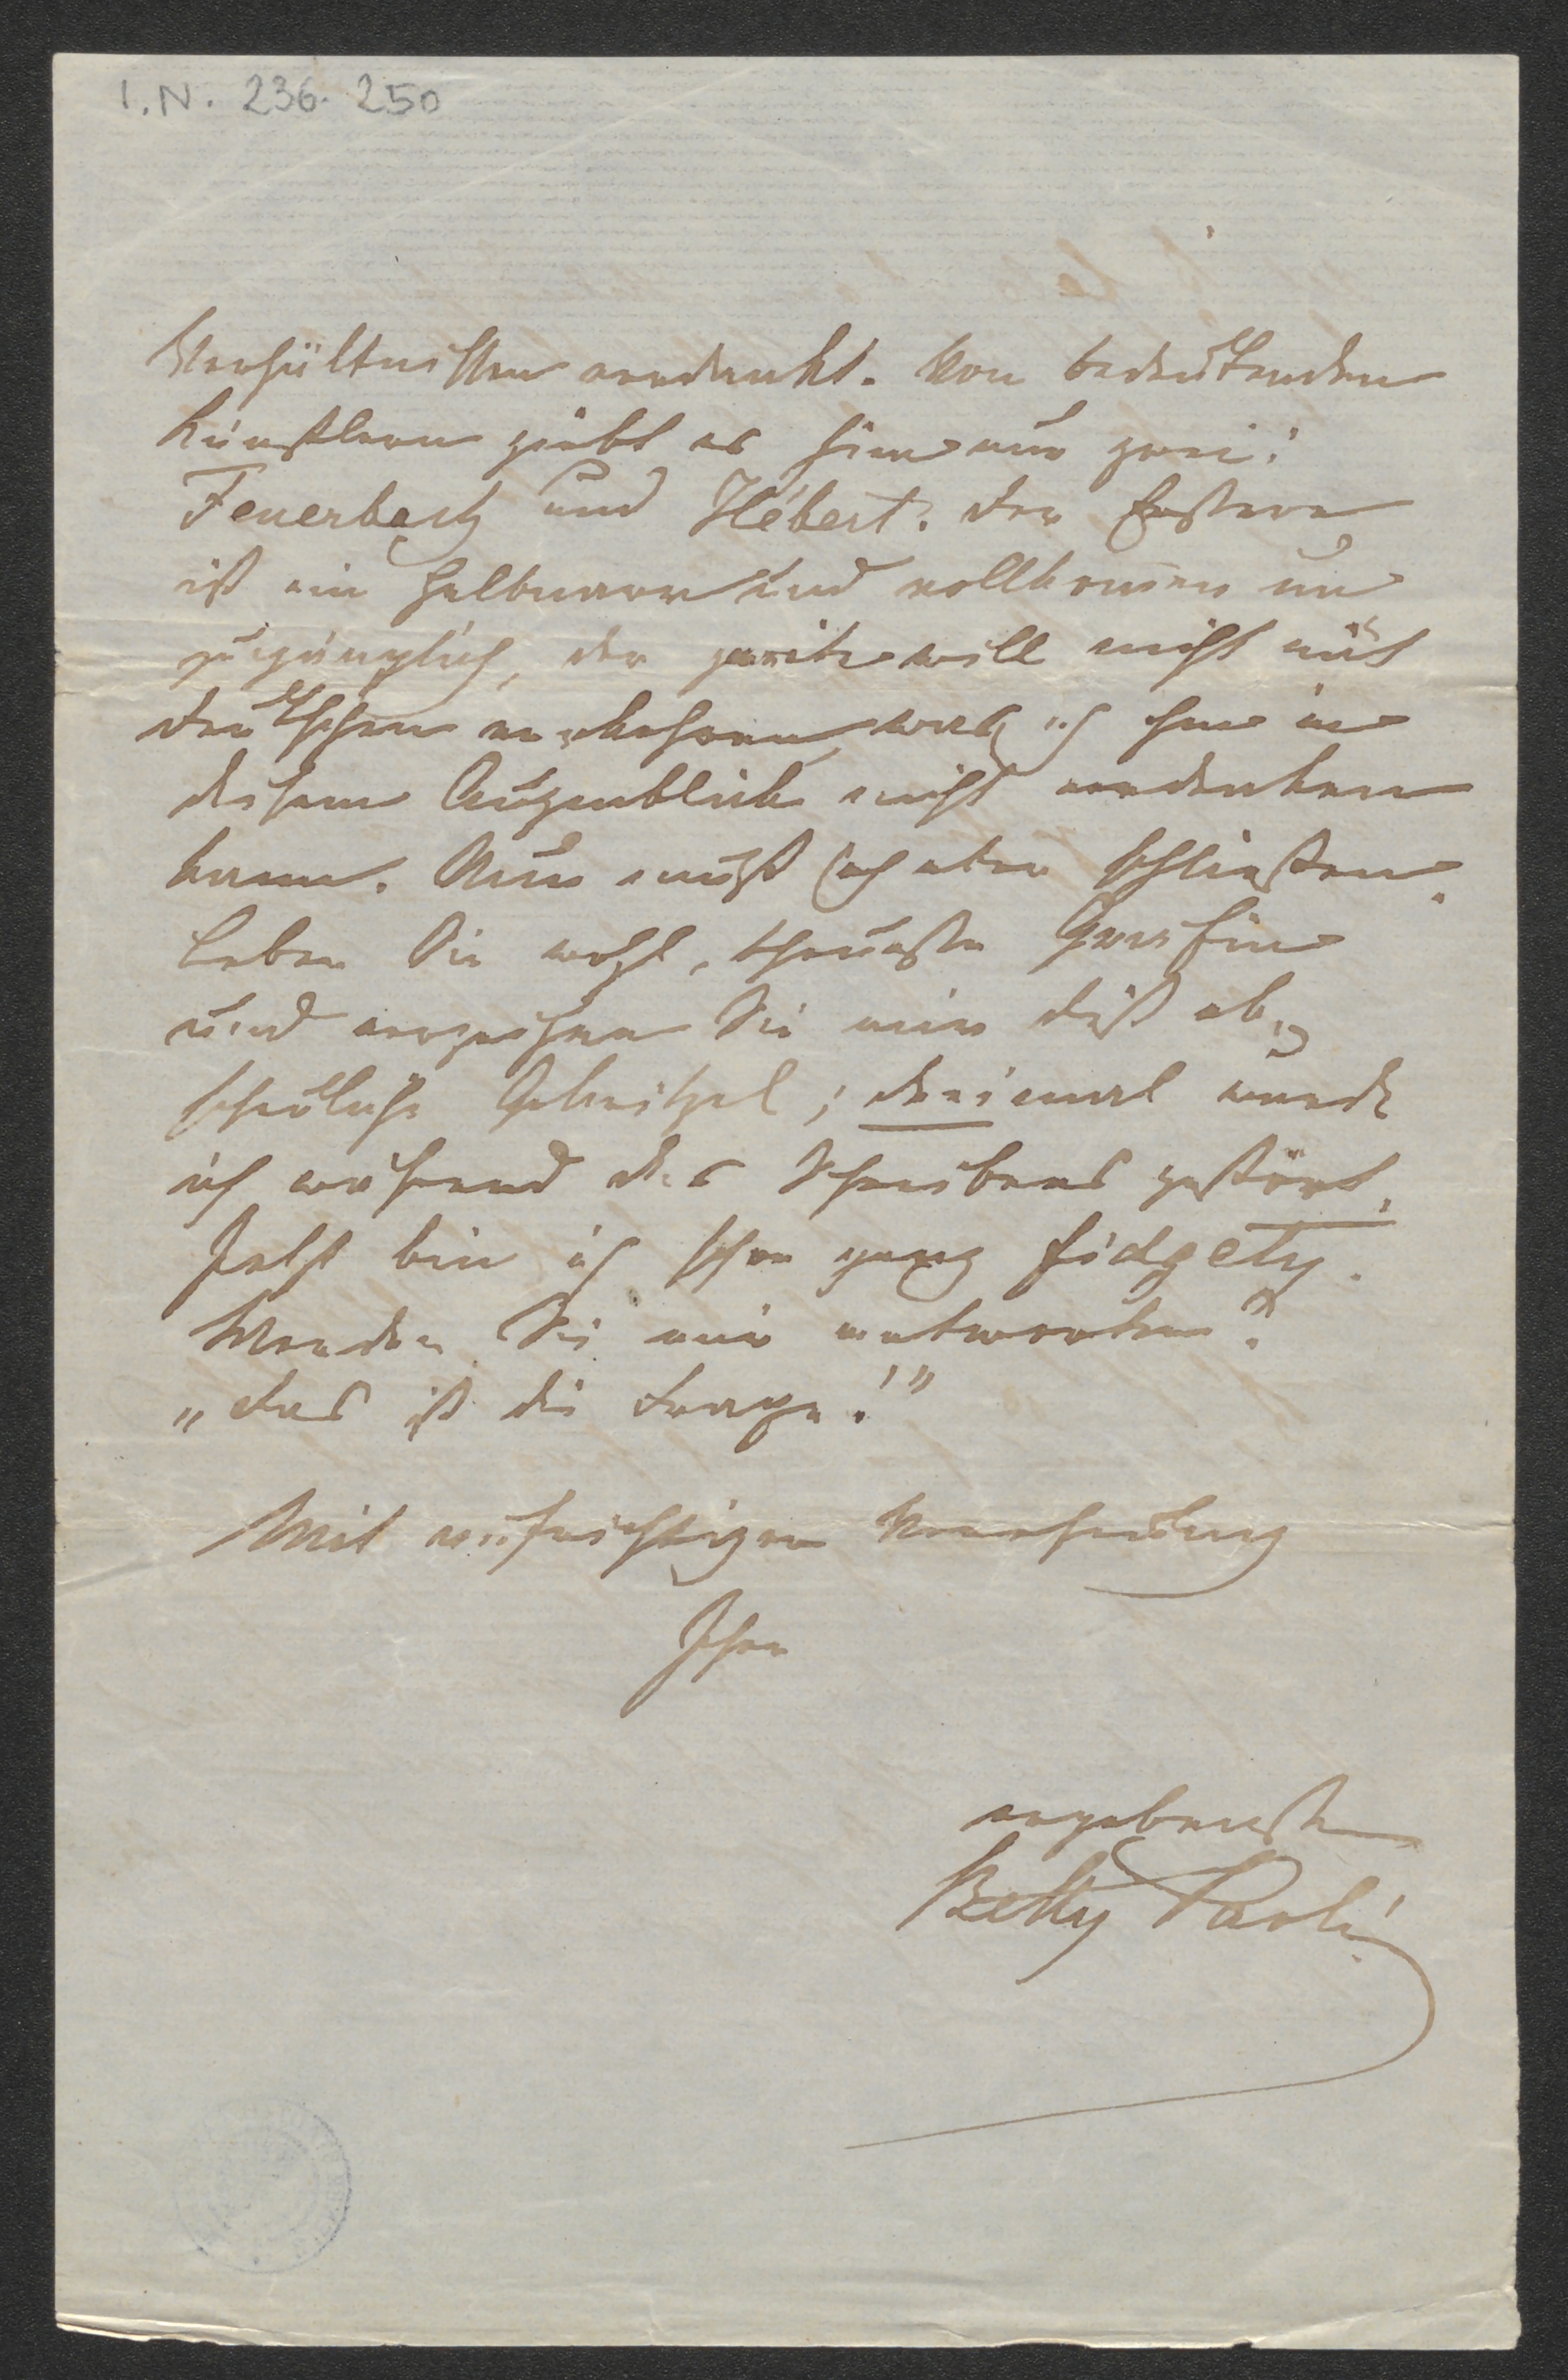 I.N. 236.250
Verhältnissen verdankt. Von bedeutenden
Künstlern giebt es hier nur zwei:
Feuerbach und Hébert. Der Erstere
ist ein Halbnarr und vollkomen un
zugänglich, der zweite will nicht mit
Deutschen verkehren, was ich ihm in
diesem Augenblick nicht verdenken
kann. Nun muß ich aber schließen.
Leben Sie wohl, theuerste Gräfin
und verzeihen Sie mir dieß ab-
scheuliche Gekritzel; dreimal wurde
ich während des Schreibens gestört.
Jetzt bin ich schon ganz fidgety.
Werden Sie mir antworten?
„Das ist die Frage!"
Mit aufrichtiger Verehrung
Ihre
ergebenste
Betty Paoli